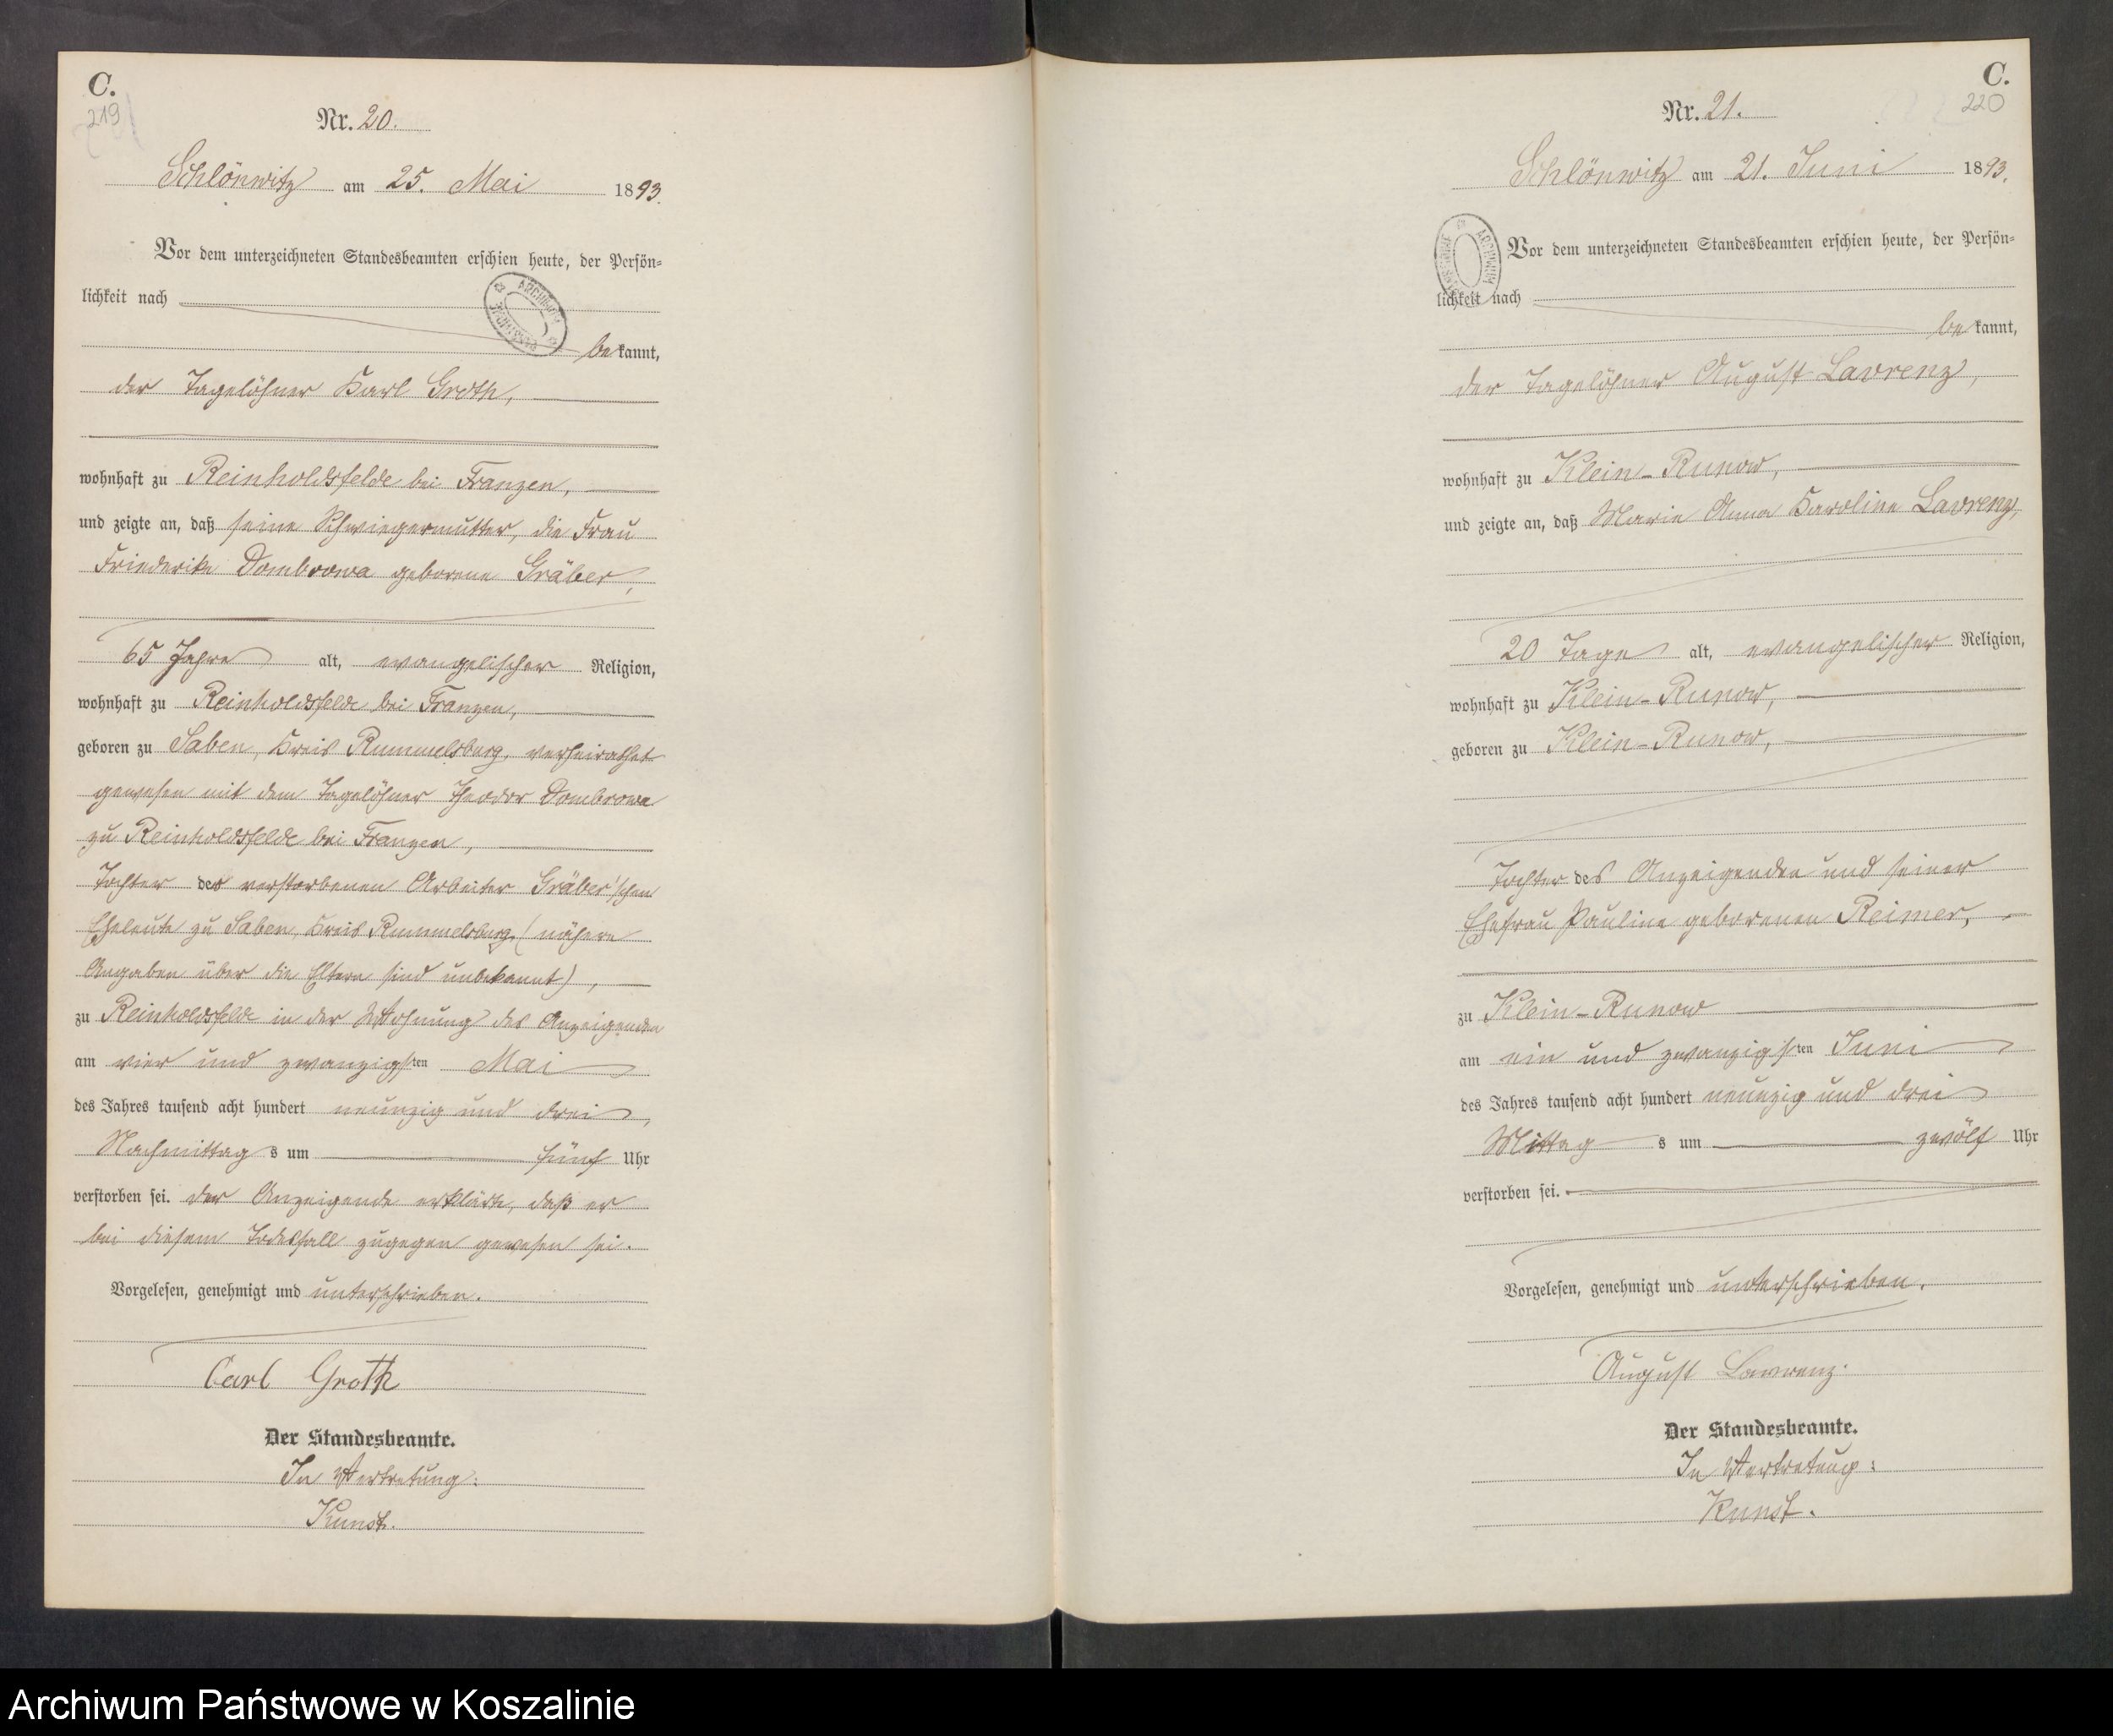 C.
219
Nr. 20.
Schlönwitz am 25. Mai 1893.
Vor dem unterzeichneten Standesbeamten erschien heute, der Persön-
lichkeit nach
bekannt,
der Tagelöhner Karl Groth,
wohnhaft zu Reinholdsfelde bei Franzen,
und zeigte an, daß seine Schwiegermutter, die Frau
Friederike Dombrowa geborene Gräber,
65 Jahre alt, evangelischer Religion,
wohnhaft zu Reinholdsfelde bei Franzen,
geboren zu Saben, Kreis Rummelsburg, verheirathet
gewesen mit dem Tagelöhner Theodor Dombrowa
zu Reinholdsfelde bei Franzen,
Tochter der verstorbenen Arbeiter Gräber'schen
Eheleute zu Saben, Kreis Rummelsburg, (nähere
Angaben über die Eltern sind unbekannt),
zu Reinholdsfelde in der Wohnung des Anzeigenden
am vier und zwanzigsten Mai
des Jahres tausend acht hundert neunzig und drei,
Nachmittags um fünf Uhr
verstorben sei. Der Anzeigende erklärte, daß er
bei diesem Todesfall zugegen gewesen sei.
Vorgelesen, genehmigt und unterschrieben.
Carl Groth
Der Standesbeamte.
In Vertretung:
Kunst.
C.
220
Nr. 21.
Schlönwitz am 21. Juni 1893.
Vor dem unterzeichneten Standesbeamten erschien heute, der Persön-
lichkeit nach
bekannt,
der Tagelöhner August Lavrenz,
wohnhaft zu Klein-Runow,
und zeigte an, daß Marie Anna Karoline Lavrenz,
20 Tage alt, evangelischer Religion,
wohnhaft zu Klein-Runow,
geboren zu Klein-Runow,
Tochter des Anzeigenden und seiner
Ehefrau Pauline geborenen Reimer,
zu Klein-Runow
am ein und zwanzigsten Juni
des Jahres tausend acht hundert neunzig und drei
Mittags um zwölf Uhr
verstorben sei.
Vorgelesen, genehmigt und unterschrieben.
August Lavrenz.
Der Standesbeamte.
In Vertretung:
Kunst.
Archiwum Państwowe w Koszalinie